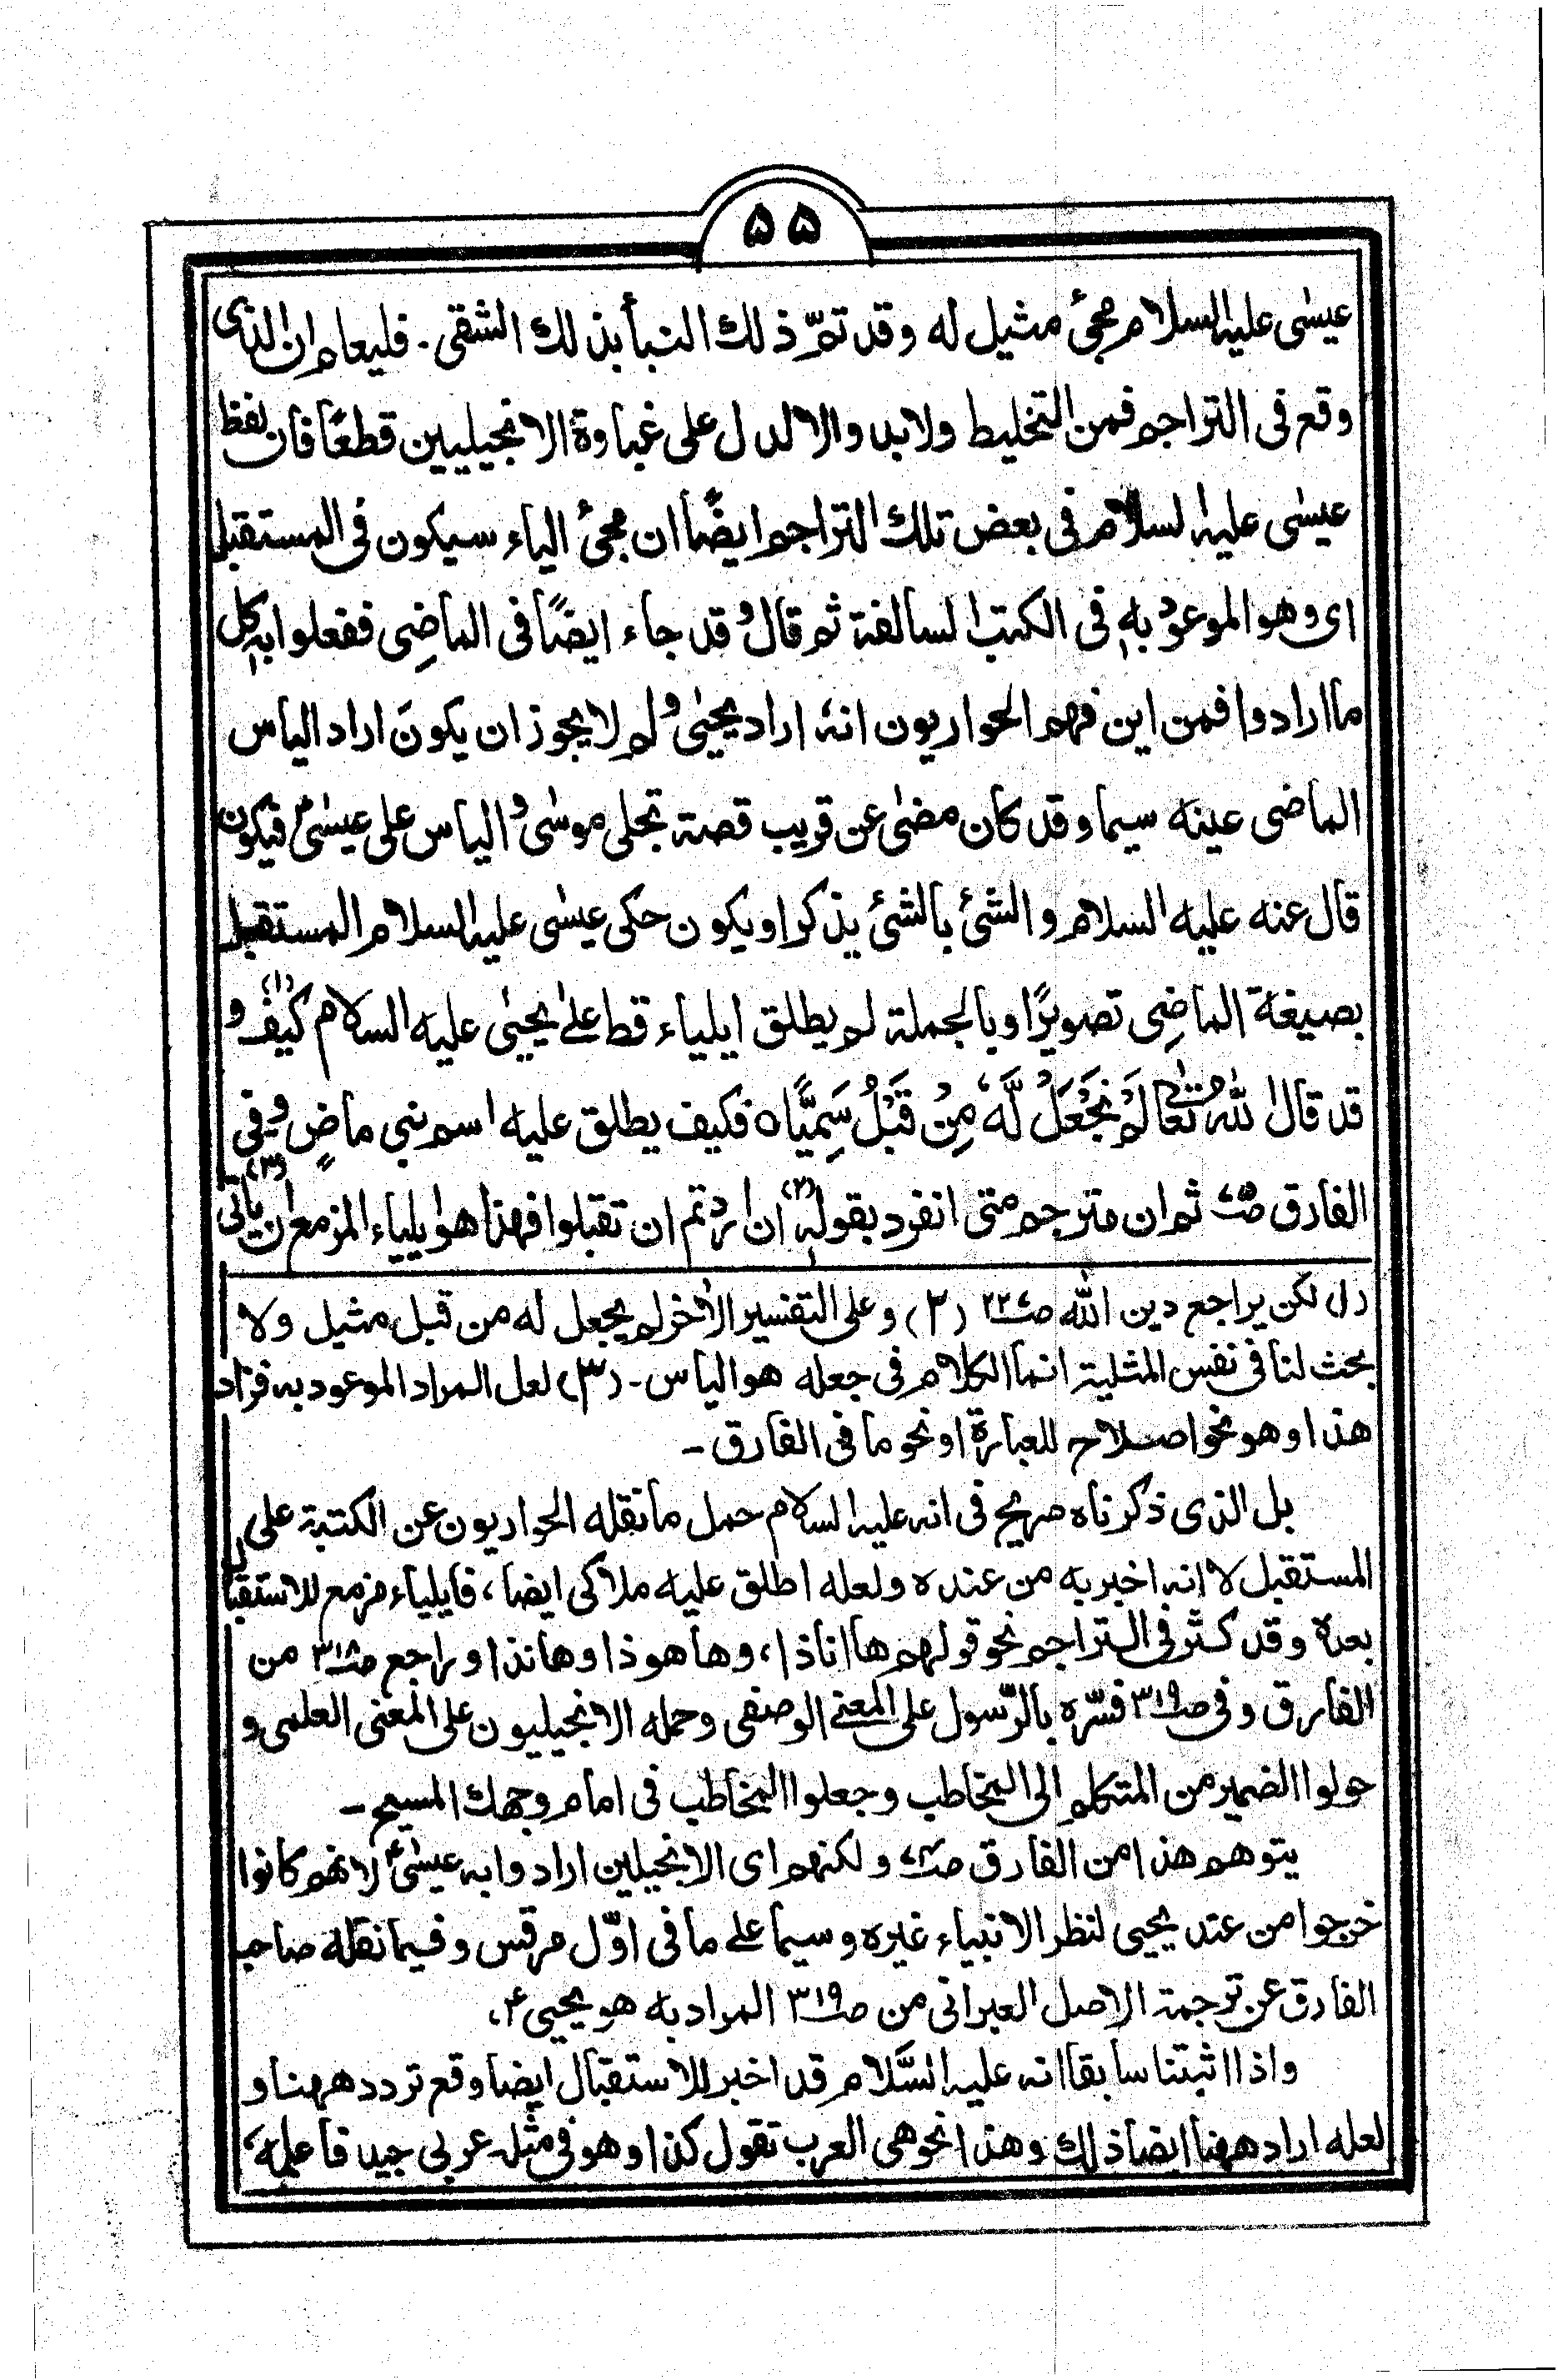 ۵۵
عیسٰی علیہ السلام مجیٔ مثیل له وقد تمّ ذلك النبأ بذلك الشقی۔ فلیعلم ان الذی
وقع فی التراجم فمن التخلیط ولا بد والا لدل علی غباوة الانجیلیین قطعًا فان لفظ
عیسٰی علیہ السلام فی بعض تلك التراجم ایضًا ان مجیٔ الیاء سیکون فی المستقبل
ای وهو الموعود به فی الکتب السالفة ثم قال وقد جاء ایضًا فی الماضِی ففعلوا به کل
ما ارادوا فمن این فهم الحواریون انه اراد یحیٰی ولم لا یجوز ان یکونَ اراد الیاس
الماضی عینه سیما وقد کان مضٰی عن قریب قصة تجلی موسٰی والیاس علی عیسٰیؑ فیکون
قال عنه علیه السلام والشیٔ بالشیٔ یذکر او یکون حکی عیسٰی علیہ السلام المستقبل
بصیغة الماضِی تصویرًا وبالجملة لم یطلق ایلیاء قط علٰی یحیٰی علیه السلام کیف(۱) و
قد قال اللہ تعالٰی لَمْ نَجْعَلْ لَّهٗ مِنْ قَبْلُ سَمِیًّا٥ فکیف یطلق علیه اسم نبی ماضٍ وفی
الفارق ثم ان مترجم متی انفرد بقوله(۲) ان اردتم ان تقبلوا فهذا هو ایلیاء المزمع ان یأتی(۳)
(۱) لکن یراجع دین اللہ (۲) وعلی التفسیر الاٰخر لم یجعل له من قبل مثیل ولا
بحث لنا فی نفس المثلیة انما الکلام فی جعله هو الیاس۔ (۳) لعل المراد الموعود به فزاد
هذا وهو نحو اصلاح للعبارة او نحو ما فی الفارق۔
بل الذی ذکرناه صریح فی انه علیہ السلام حمل ما نقله الحواریون عن الکتبة علی
المستقبل لا انه اخبر به من عنده ولعله اطلق علیه ملاکی ایضا، فایلیاء مزمع للاستقبال
بعده وقد کثر فی التراجم نحو قولهم ها انا ذا، وها هو ذا وهانذا وراجع صـ۳۱۸ من
الفارق وفی صـ۳۱۹ فسّره بالرّسول علی المعنی الوصفی وحمله الانجیلیون علی المعنی العلمی و
حولوا الضمیر من المتکلم الی المخاطب وجعلوا المخاطب فی امام وجهك المسیح۔
یتوهم هذا من الفارق ولکنهم ای الانجیلین ارادوا به عیسٰیؑ لانهم کانوا
خرجوا من عند یحیی لنظر الانبیاء غیره وسیما علے ما فی اوّل مرقس وفیما نقله صاحب
الفارق عن ترجمة الاصل العبرانی من صـ۳۱۹ المراد به هو یحییؑ،
واذا اثبتنا سابقا انه علیہ السَّلام قد اخبر للاستقبال ایضا وقع تردد ههنا و
لعله اراد ههنا ایضا ذلك وهذا نحو هی العرب تقول کذا وهو فی مثله عربی جید فاعلمه،